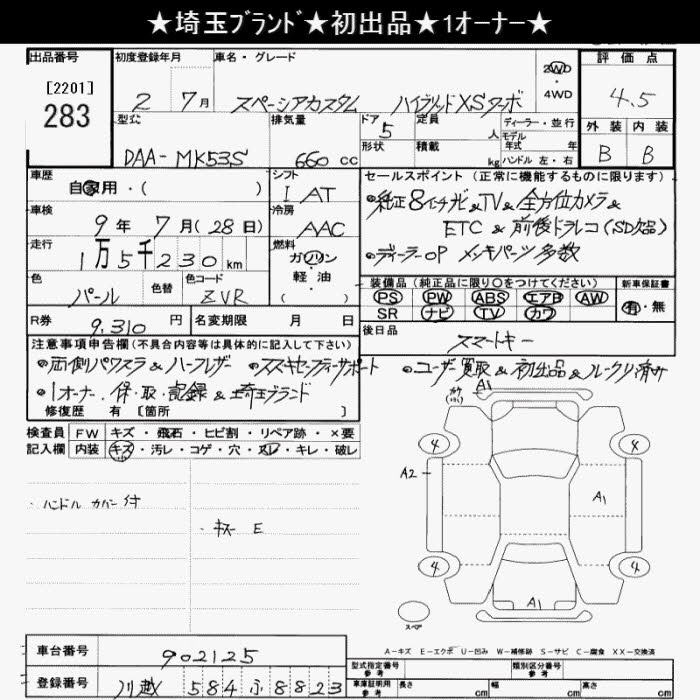 ★埼玉ブランド★初出品★1オーナー★
出品番号 初度登録年月 車名・グレード 2WD・4WD 評価点
[2201]
283
2 7月 スペーシアカスタム ハイブリッドXSターボ 4.5
型式 排気量 ドア 定員 ディーラー・並行 外装 内装
DAA-MK53S 660 cc 5 人 モデル年式 年 B B
形状 積載 kg ハンドル 左・右
車歴 自家用・( ) シフト I AT
セールスポイント(正常に機能するものに限ります)
車検 9年 7月(28日) 冷房 AAC
●純正8インチナビ&TV&全方位カメラ&
ETC&前後ドラレコ(SD欠品)
●ディーラーOP メッキパーツ多数
走行 1万5千230km 燃料 ガソリン・軽油・( )
色 パール 色替 色コード ZVR
装備品(純正品に限り○をつけてください) 新車保証書
PS PW ABS エアB AW 有・無
SR ナビ TV カワ
R券 9,310 円 名変期限 月 日
後日品 スマートキー
注意事項申告欄(不具合内容等は具体的に記入して下さい)
●両側パワスラ&ハーフレザー ●スズキセーフティーサポート ●ユーザー買取&初出品&ルークリ済み
●1オーナー.保・取・記録&埼玉ブランド
修復歴 有[箇所 ]
検査員 FW キズ・飛石・ヒビ割・リペア跡・×要
記入欄 内装 キズ・汚レ・コゲ・穴・スレ・キレ・破レ
・ハンドルカバー付
・キズ E
A1
4 4
A2 A1
4 4
A1
スペア
A-キズ E-エクボ U-凹み W-補修跡 S-サビ C-腐食 XX-交換済
車台番号 902125
型式指定番号 参考 類別区分番号 参考
登録番号 川越 584 ふ 8823
車庫証明用 参考 長さ cm 幅 cm 高さ cm